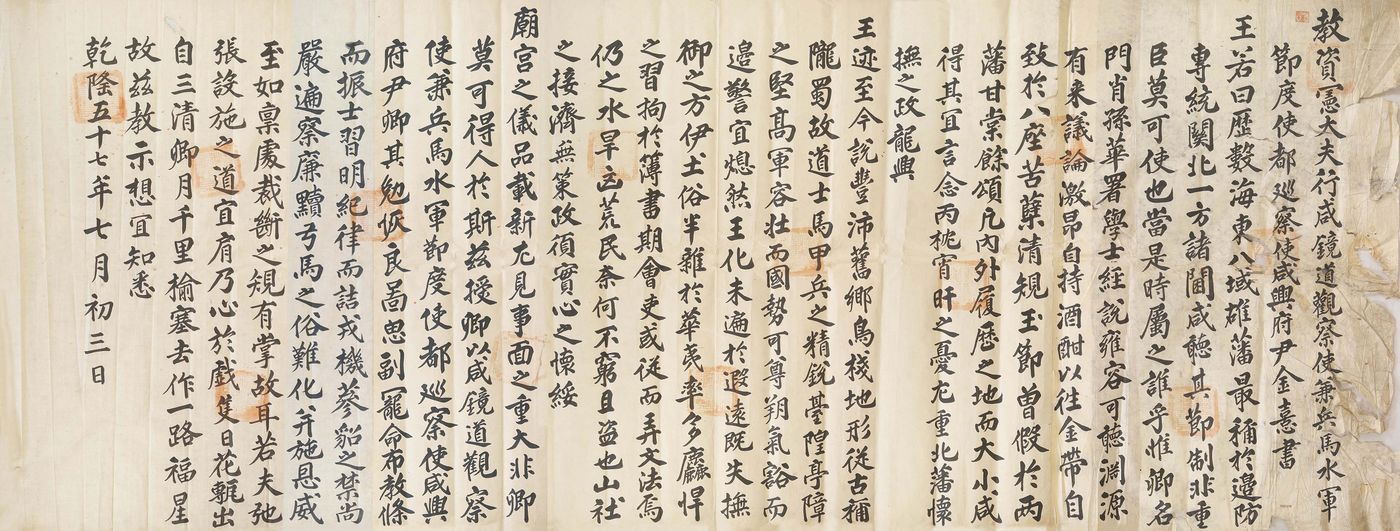 教資憲大夫行咸鏡道觀察使兼兵馬水軍
節度使都巡察使咸興府尹金憙書
王若曰歷數海東八域雄藩最稱於邊防
專統關北一方諸閫咸聽其節制非重
臣莫可使也當是時屬之誰乎惟卿名
門肖孫華署學士經說雍容可聽淵源
有來議論激昂自持酒酣以往金帶自
致於八座苦蘗清規玉節曾假於兩
藩甘棠餘頌凡內外履歷之地而大小咸
得其宜言念丙枕宵旰之憂尤重北藩懷
撫之政龍興
王迹至今說豐沛舊鄉鳥棧地形從古稱
隴蜀故道士馬甲兵之精銳臺隍亭障
之堅高軍容壯而國勢可尊朔氣豁而
邊警宜熄然王化未遍於遐遠既失撫
御之方伊土俗半雜於華夷率多麤悍
之習拘於簿書期會吏或從而弄文法焉
仍之水旱凶荒民奈何不窮且盜也山社
之接濟無策政須實心之懷綏
廟宮之儀品載新尤見事面之重大非卿
莫可得人於斯茲授卿以咸鏡道觀察
使兼兵馬水軍節度使都巡察使咸興
府尹卿其勉恢良啚思副寵命布教條
而振士習明紀律而詰戎機蔘貂之禁尚
嚴遍察廉黷弓馬之俗難化并施恩威
至如稟處裁斷之規有掌故耳若夫弛
張設施之道宜肩乃心於戲隻日花甎出
自三清卿月千里榆塞去作一路福星
故茲教示想宜知悉
乾隆五十七年七月初三日